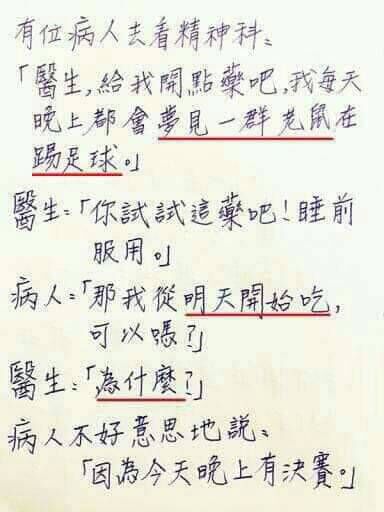 有位病人去看精神科：
「醫生，給我開點藥吧，我每天
晚上都會夢見一群老鼠在
踢足球。」
醫生：「你試試這藥吧！睡前
服用。」
病人：「那我從明天開始吃，
可以嗎？」
醫生：「為什麼？」
病人不好意思地說：
「因為今天晚上有決賽。」